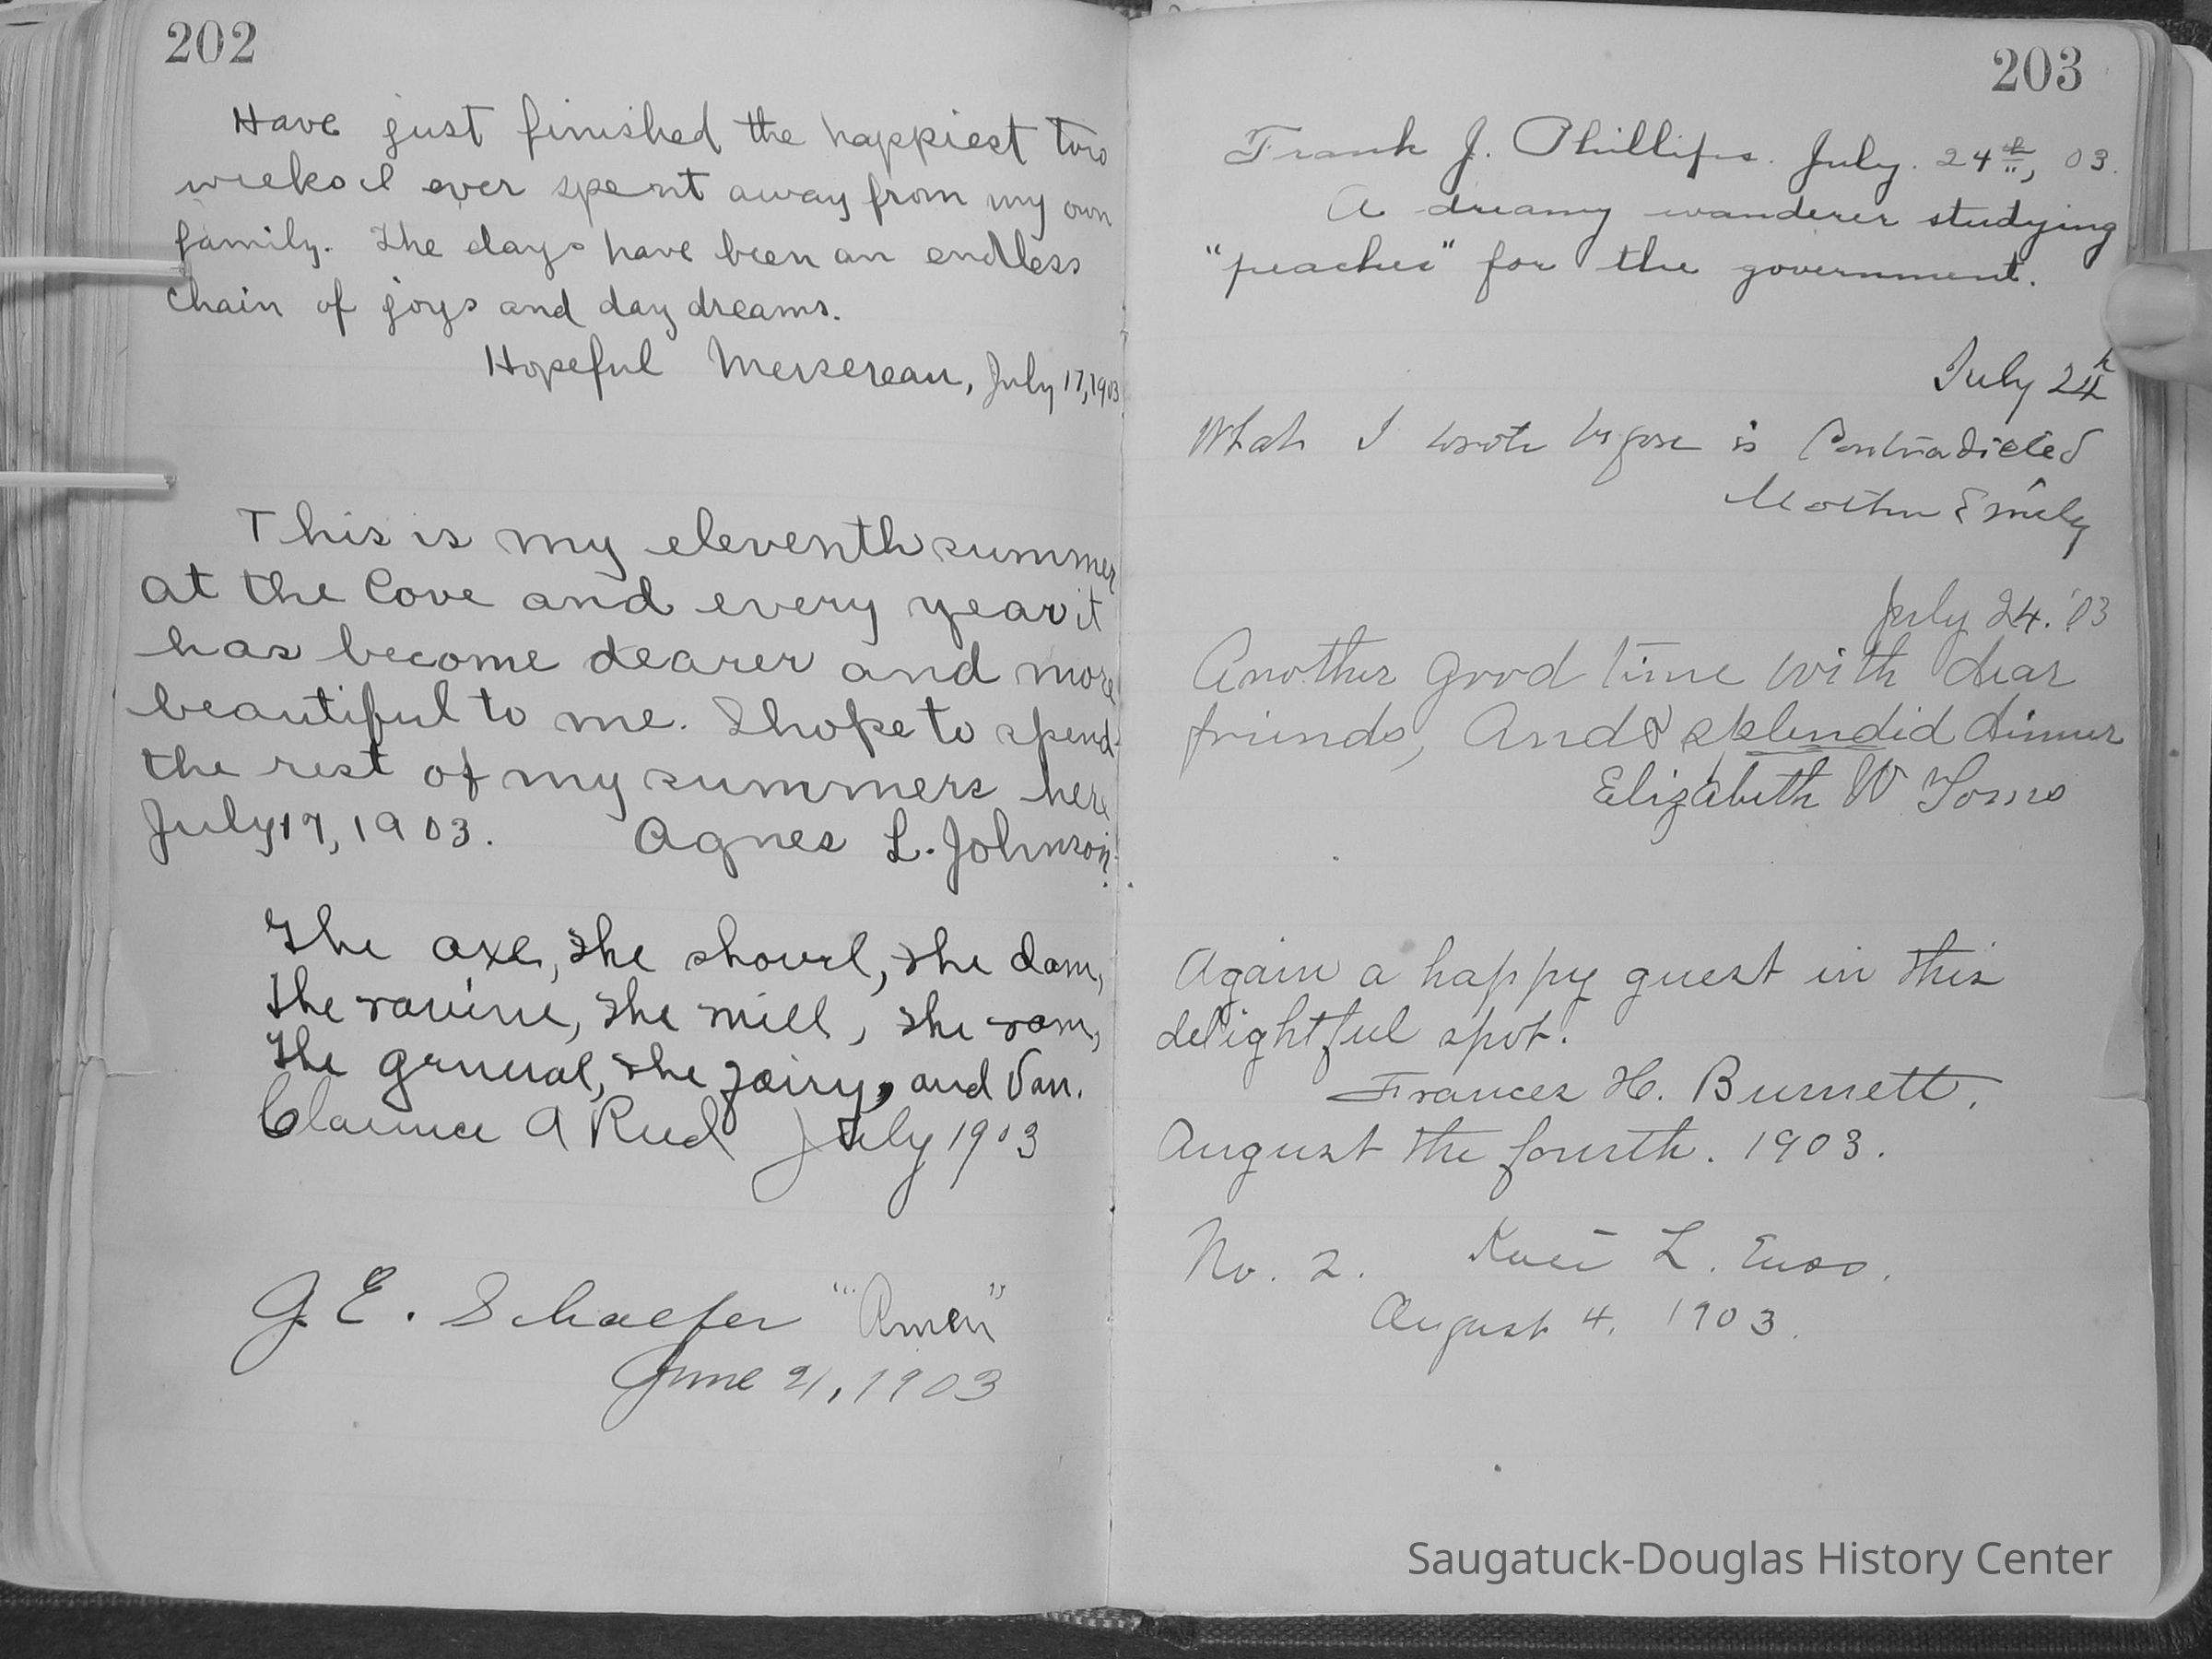 202
Have just finished the happiest two
weeks I ever spent away from my own
family. The days have been an endless
chain of joys and day dreams.
Hopeful Mersereau, July 17, 1903
This is my eleventh summer
at the Cove and every year it
has become dearer and more
beautiful to me. I hope to spend
the rest of my summers here
July 17, 1903. Agnes L. Johnson.
The axe, the shovel, the dam,
the ravine, the mill, the ram,
the the fairy, and Van.
Clarence A Reed July 1903
G. E. Schaefer "Amen"
June 21, 1903
203
Frank J. Phillips. July. 24th, 03.
A dreamy wanderer studying
"peaches" for the government.
July 24th
What I wrote before is Contradicted
Emily
July 24. '03
Another good time with dear
friends, And a splendid dinner
Elizabeth W
Again a happy guest in this
delightful spot.
Frances H. Burnett.
August the fourth. 1903.
No. 2. L.
August 4. 1903.
Saugatuck-Douglas History Center